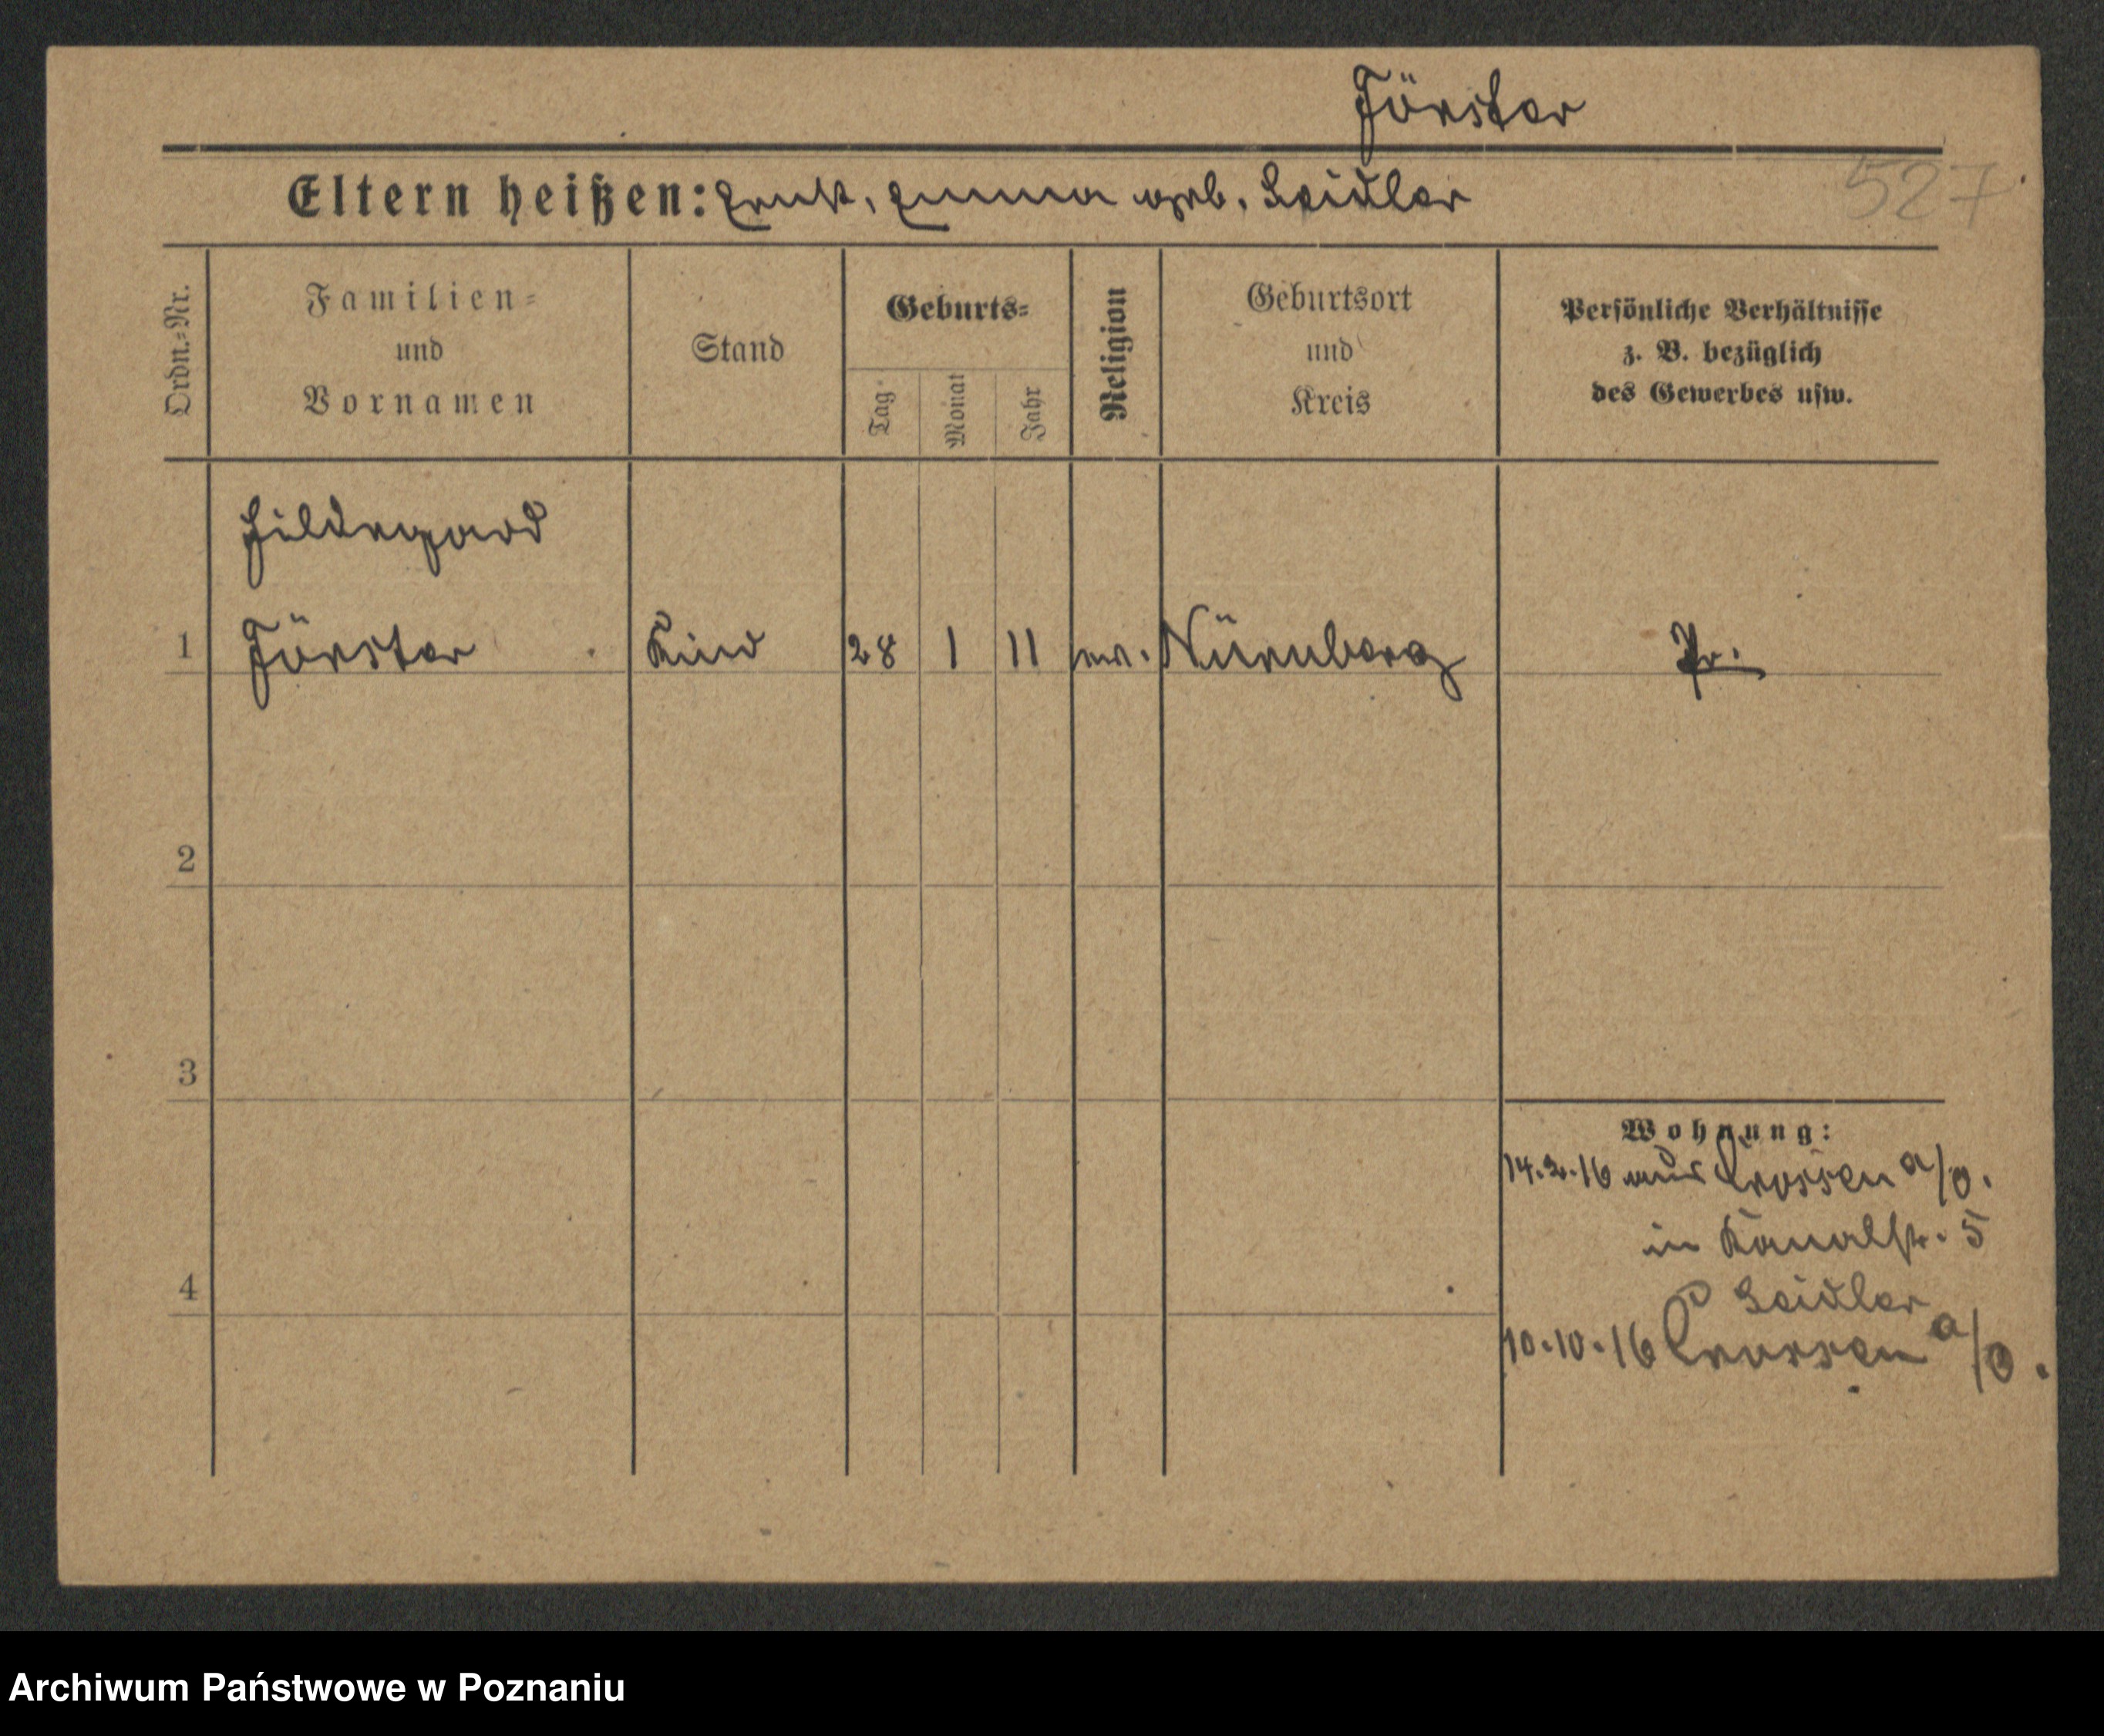 Förster
Eltern heißen: Ernst, Emma geb. Seidler
527
Ordn.-Nr.
Familien-
und
Vornamen
Stand
Geburts-
Tag
Monat
Jahr
Religion
Geburtsort
und
Kreis
Persönliche Verhältnisse
z. B. bezüglich
des Gewerbes usw.
Hildegard
1 Förster Kind 28 1 11 ev. Nürnberg Pr.
2
3
4
Wohnung:
14.2.16 aus Crossen a/O.
in Kanalstr. 5
Seidler
10.10.16 Crossen a/O.
Archiwum Państwowe w Poznaniu